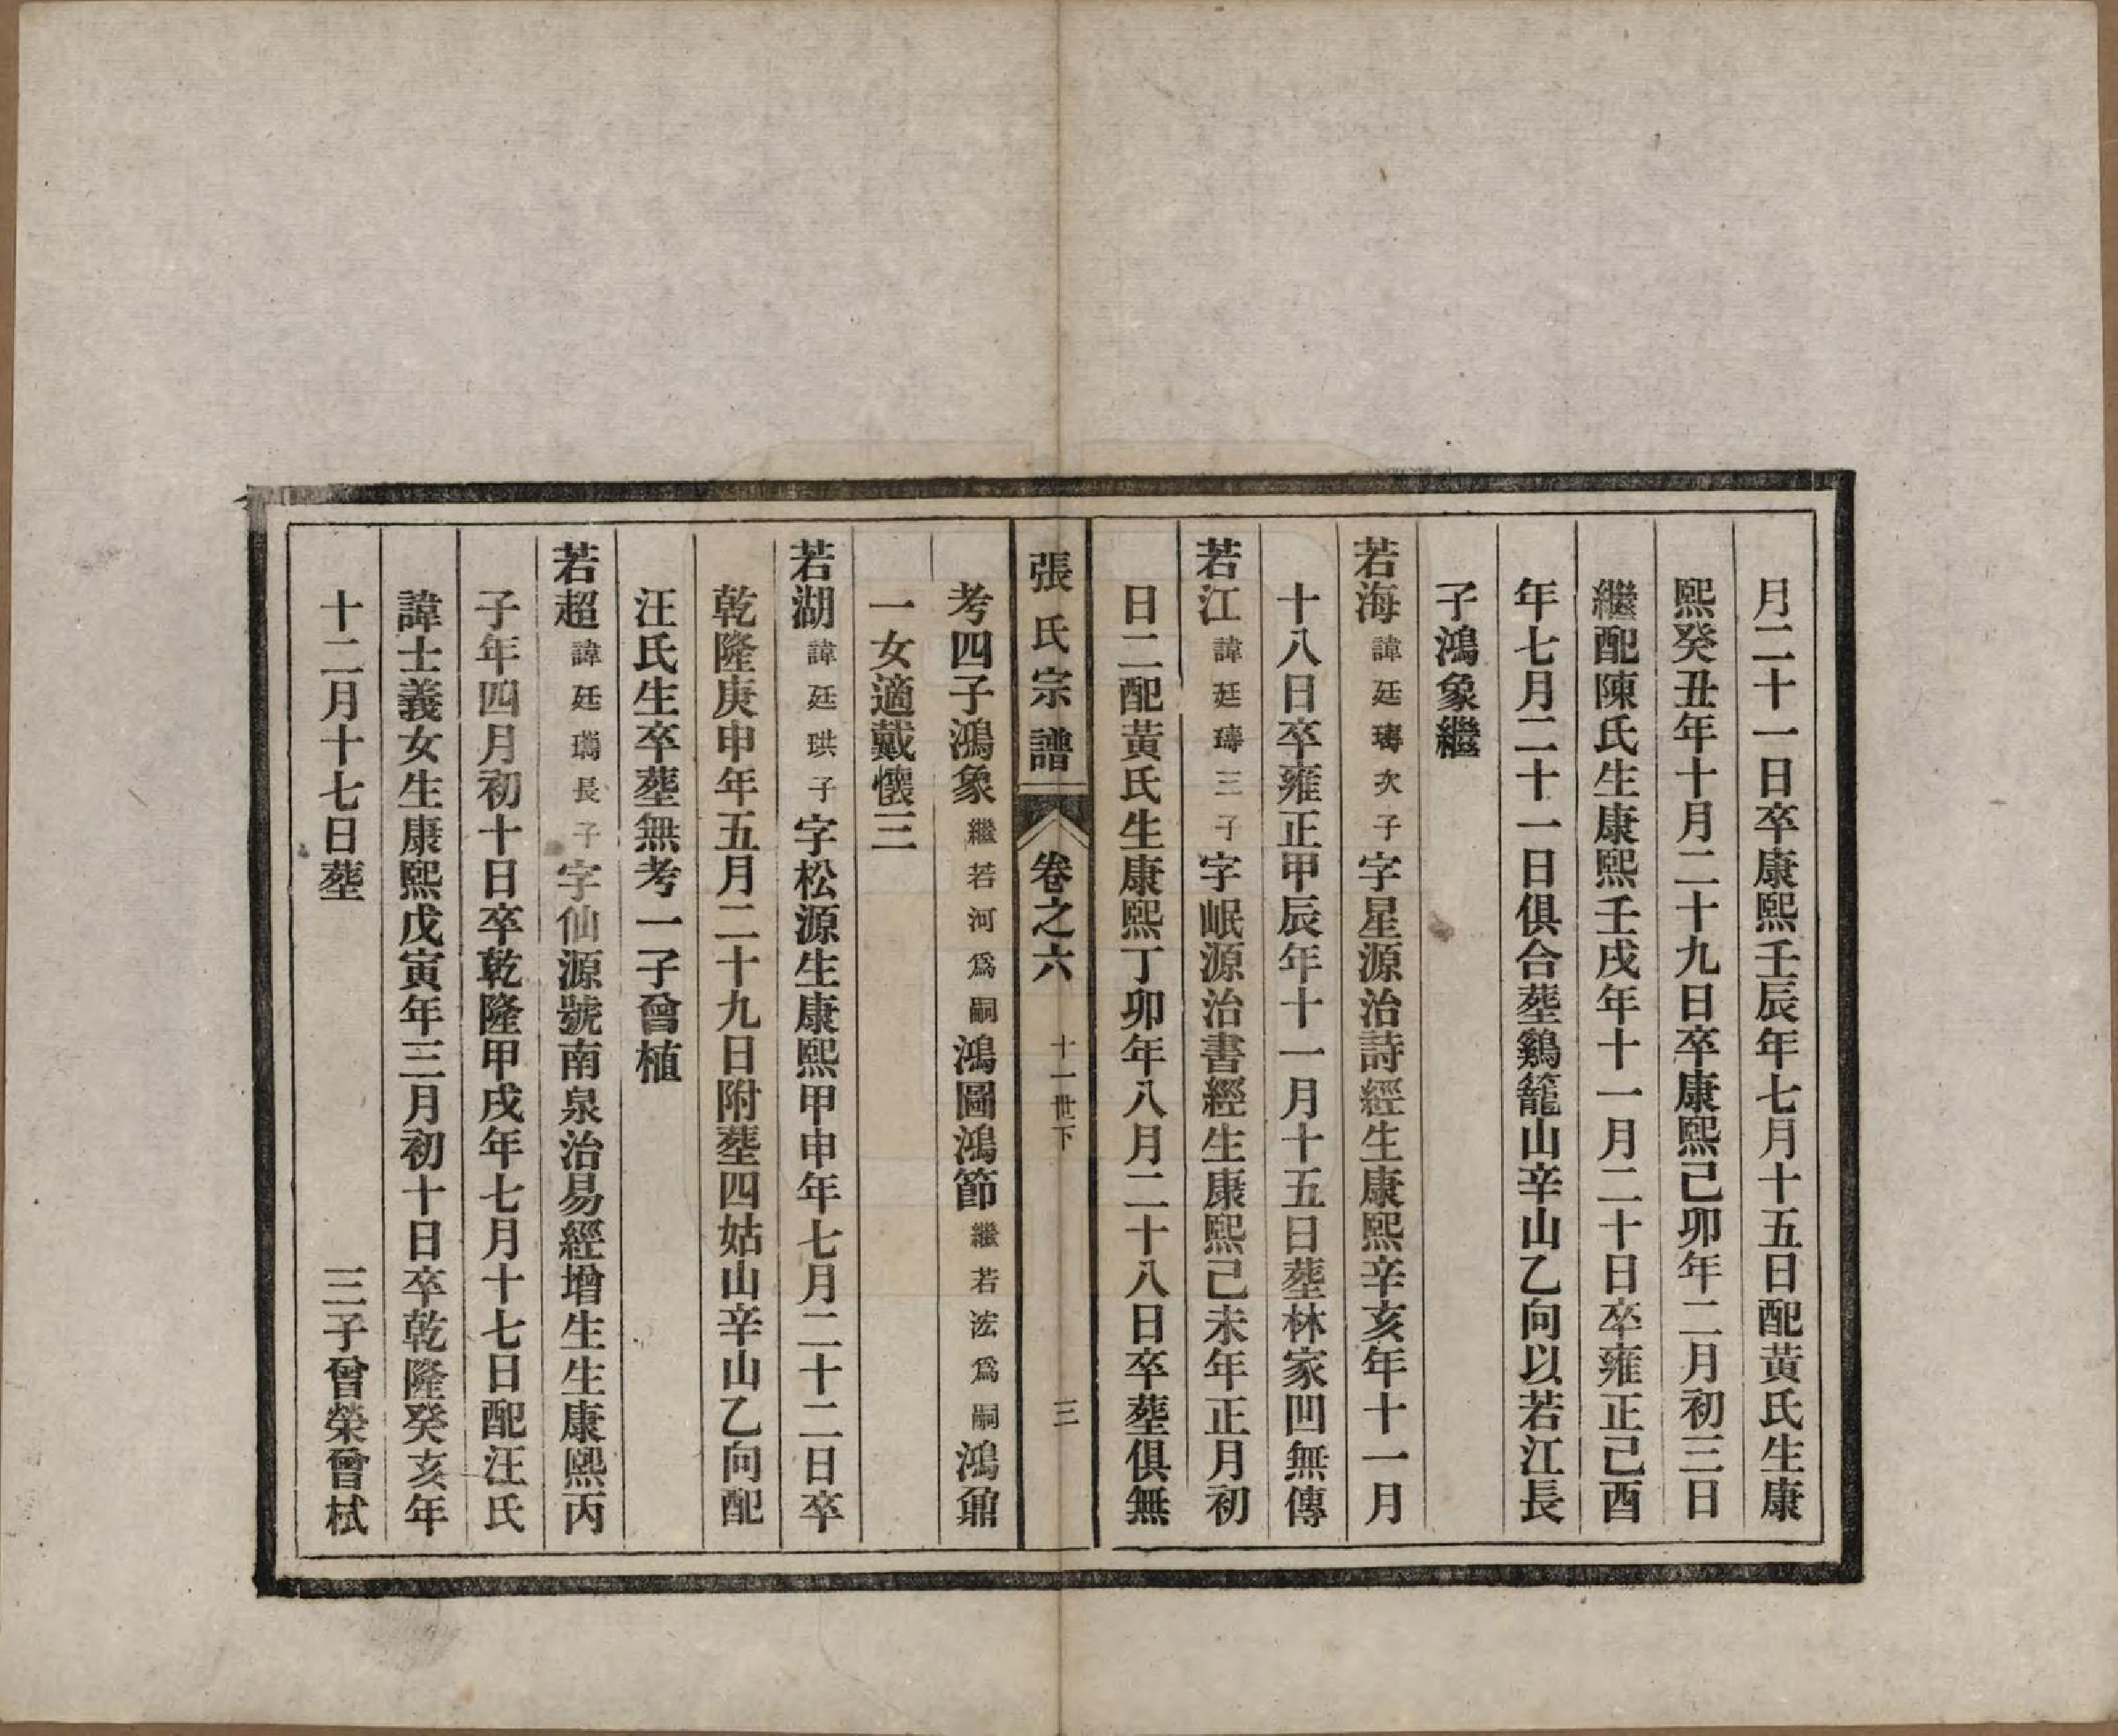 月二十一日卒康熙壬辰年七月十五日配黃氏生康
熙癸丑年十月二十九日卒康熙己卯年二月初三日
繼配陳氏生康熙壬戌年十一月二十日卒雍正己酉
年七月二十一日俱合塟鷄籠山辛山乙向以若江長
子鴻象繼
若海諱廷璹次子字星源治詩經生康熙辛亥年十一月
十八日卒雍正甲辰年十一月十五日塟林家凹無傳
若江諱廷璹三子字岷源治書經生康熙己未年正月初
日二配黃氏生康熙丁卯年八月二十八日卒塟俱無
張氏宗譜 卷之六 十一世下 三
考四子鴻象繼若河為嗣鴻圖鴻節繼若浤為嗣鴻鼐
一女適戴懷三
若湖諱廷珙子字松源生康熙甲申年七月二十二日卒
乾隆庚申年五月二十九日附塟四姑山辛山乙向配
汪氏生卒塟無考一子曾植
若超諱廷瓗長子字仙源號南泉治易經增生生康熙丙
子年四月初十日卒乾隆甲戌年七月十七日配汪氏
諱士義女生康熙戊寅年三月初十日卒乾隆癸亥年
十二月十七日塟 三子曾榮曾栻